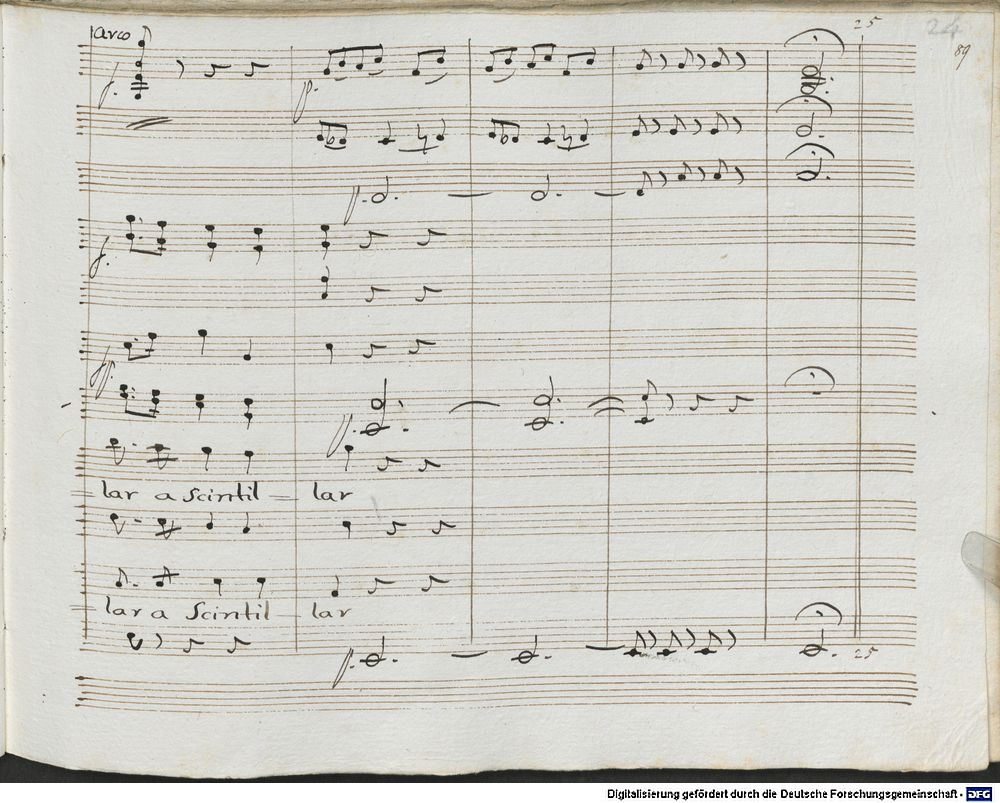 25
24
89
arco
f. p.
p.
f.
ff.
p.
lar a Scintil = lar
lar a Scintil lar
p.
25
Digitalisierung gefördert durch die Deutsche Forschungsgemeinschaft - DFG